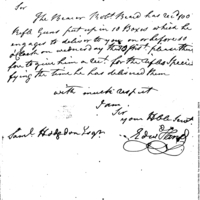 Sir
The Bearer Robt Beard has rec'd 100
Rifle Guns put up in 10 Boxes which he
engages to deliver to you on or before 10
o'clock on wednesday the first, please therefore
to give him a rect. for the rifles specifying
the time he has delivered them
with much respect
I am
Sir
your Hble Servt
Saml Hodgdon Esqr